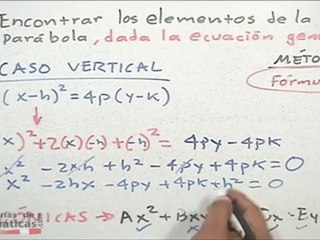 Encontrar los elementos de la
parábola, dada la ecuación gene
CASO VERTICAL
MÉTO
(x-h)² = 4p(y-k)
Fórmu
x)² + 2(x)(-h) + (-h)² = 4py - 4pk
x² - 2xh + h² - 4py + 4pk = 0
x² - 2hx - 4py + 4pk + h² = 0
NICAS → Ax² + Bxy
x - Ey